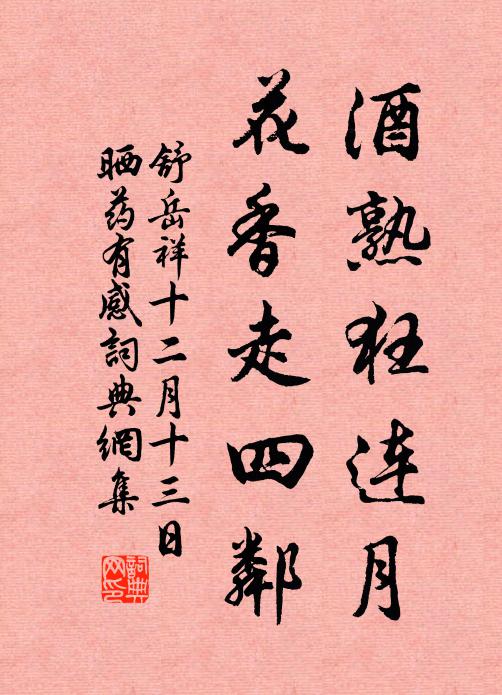 酒熟狂连月
花香走四鄰
舒岳祥十二月十三日
晒药有感詞典網集
詞典
网印